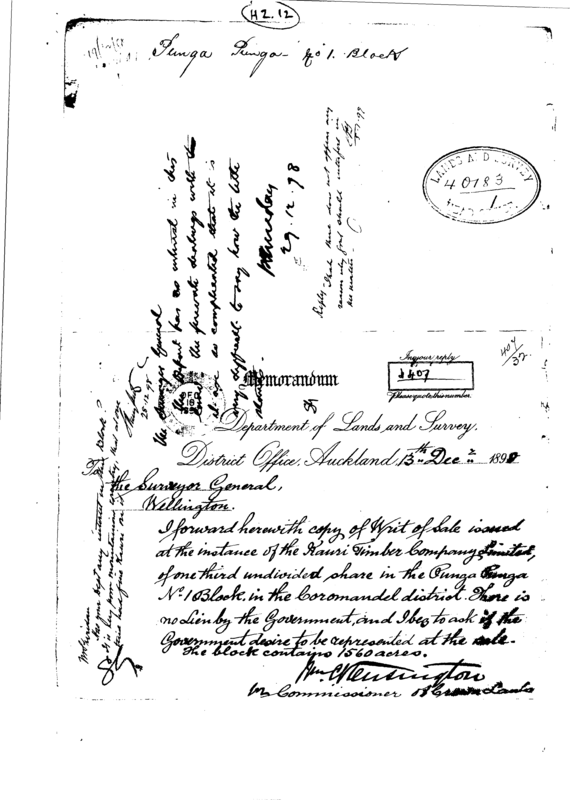 H2.12
Punga Punga No 1. Block
LANDS AND SURVEY
40183
1
In your reply
1407
Please quote this number
404/32
Memorandum
Department of Lands and Survey,
District Office, Auckland 13th Dec 1898
To
The Surveyor General,
Wellington.
I forward herewith copy of Writ of Sale issued
at the instance of the Kauri Timber Company Limited,
of one third undivided share in the Punga Punga
No 1 Block, in the Coromandel district. There is
no Lien by the Government, and I beg to ask if the
Government desire to be represented at the sale.
The block contains 1560 acres.
Commissioner of Crown Lands
The Surveyor General
this Dept has no interest in this
the private dealings with
it are so complicated that it is
very difficult to say how the title
stands.
29.12.98
Reply that there does not appear any
reason why Govt should interfere in
28.12.98
Has your Dept any interest in this Block?